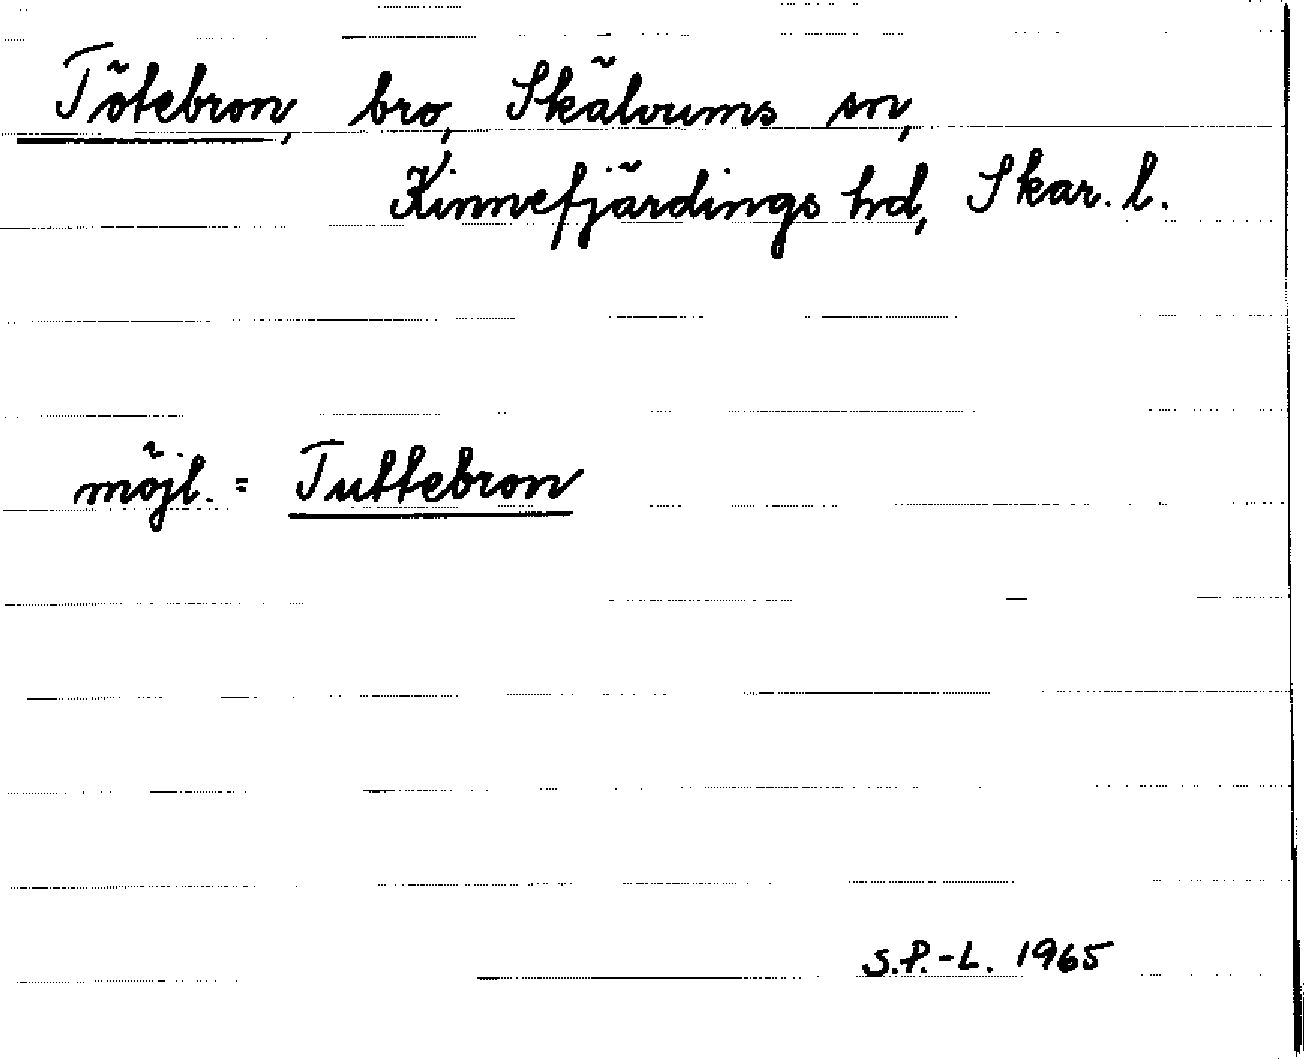 Tötebron, bro, Skälvums sn,
Kinnefjärdings hd, Skar. l.
möjl. = Tuttebron
S.P.-L. 1965